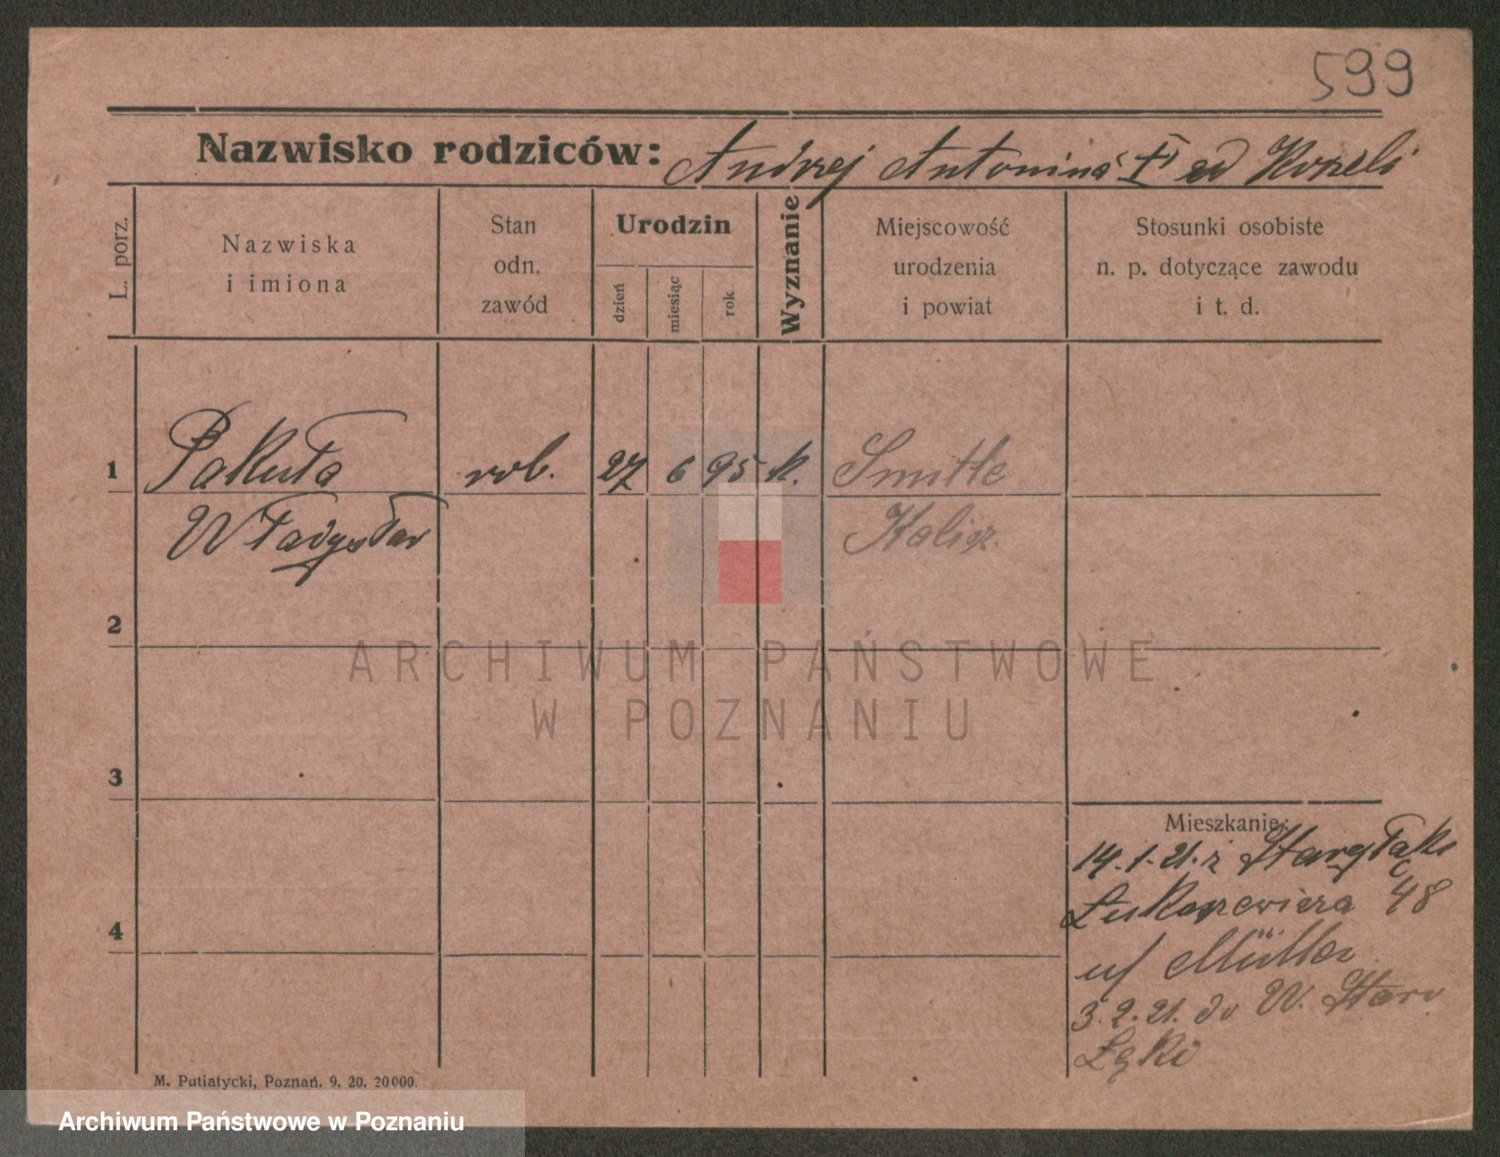 599
Nazwisko rodziców: Andrzej Antonina
L. porz.
Nazwiska
i imiona
Stan
odn.
zawód
Urodzin
dzień
miesiąc
rok
Wyznanie
Miejscowość
urodzenia
i powiat
Stosunki osobiste
n. p. dotyczące zawodu
i t. d.
1 Pakuła rob. 27 6 95 k. Smitke
Władysław Kalisz.
2
ARCHIWUM PAŃSTWOWE
W POZNANIU
3
Mieszkanie:
14.1.21. z
Łukaszewicza 48
4
u/ Müller
3.2.21. do W. Staro
Łęki
M. Putiatycki, Poznań. 9. 20. 20000.
Archiwum Państwowe w Poznaniu